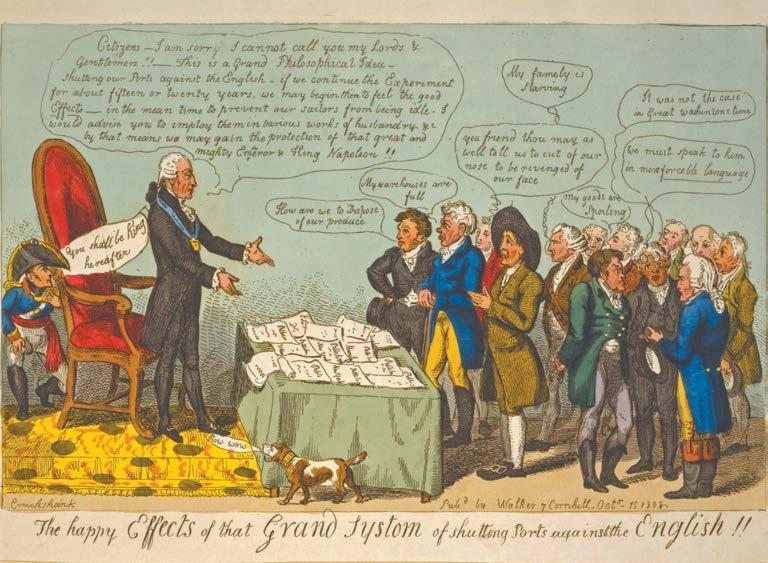 Citizens – I am sorry I cannot call you my Lords &
Gentlemen!! – This is a Grand Philosophical Idea –
shutting our Ports against the English – if we continue the Experiment
for about fifteen or twenty years, we may begin then to feel the good
Effects – in the mean time to prevent our sailors from being idle. I
would advise you to imploy them in various works of husbandry &c
by that means we may gain the protection of that great and
mighty Emperor & King Napoleon!!
You shall be King
hereafter
How are we to Dispose
of our produce
My warehouses are
full
My famely is
Starving
yea friend thou may as
well tell us to cut of our
nose to be revenged of
our face
My goods are
Spoiling
It was not the case
in Great Washintons time
We must speak to him
in more forceble language
Bow wow
Cruikshank
Pubd by Walker 7 Cornhill. Octr 15 1808
The happy Effects of that Grand Systom of shutting Ports against the English!!